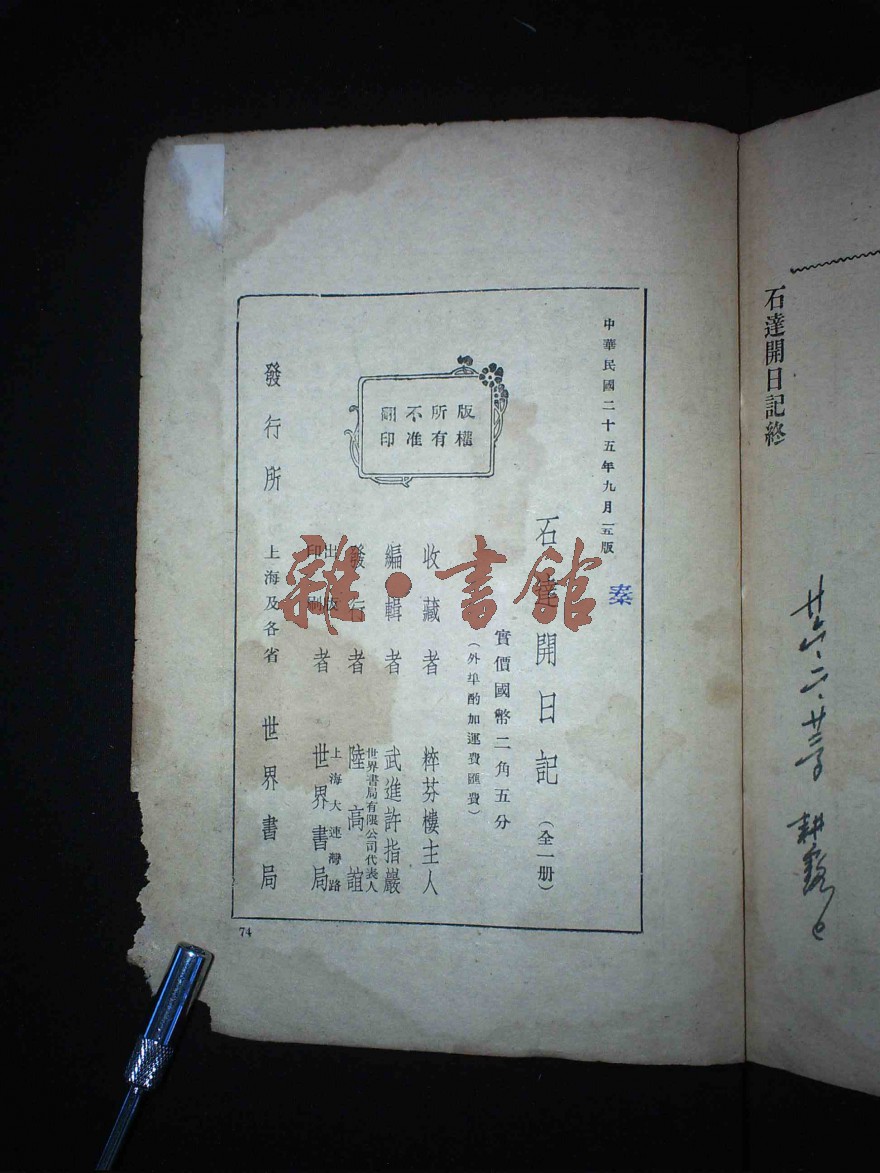 石達開日記終
廿六、二、廿三
中華民國二十五年九月五版
秦
石達開日記（全一册）
實價國幣二角五分
（外埠酌加運費匯費）
版權所有
不准翻印
收藏者 粹芬樓主人
編輯者 武進許指嚴
發行者 世界書局有限公司代表人 陸高誼
出版印刷者 上海大連灣路 世界書局
發行所 上海及各省 世界書局
74
雜·書館